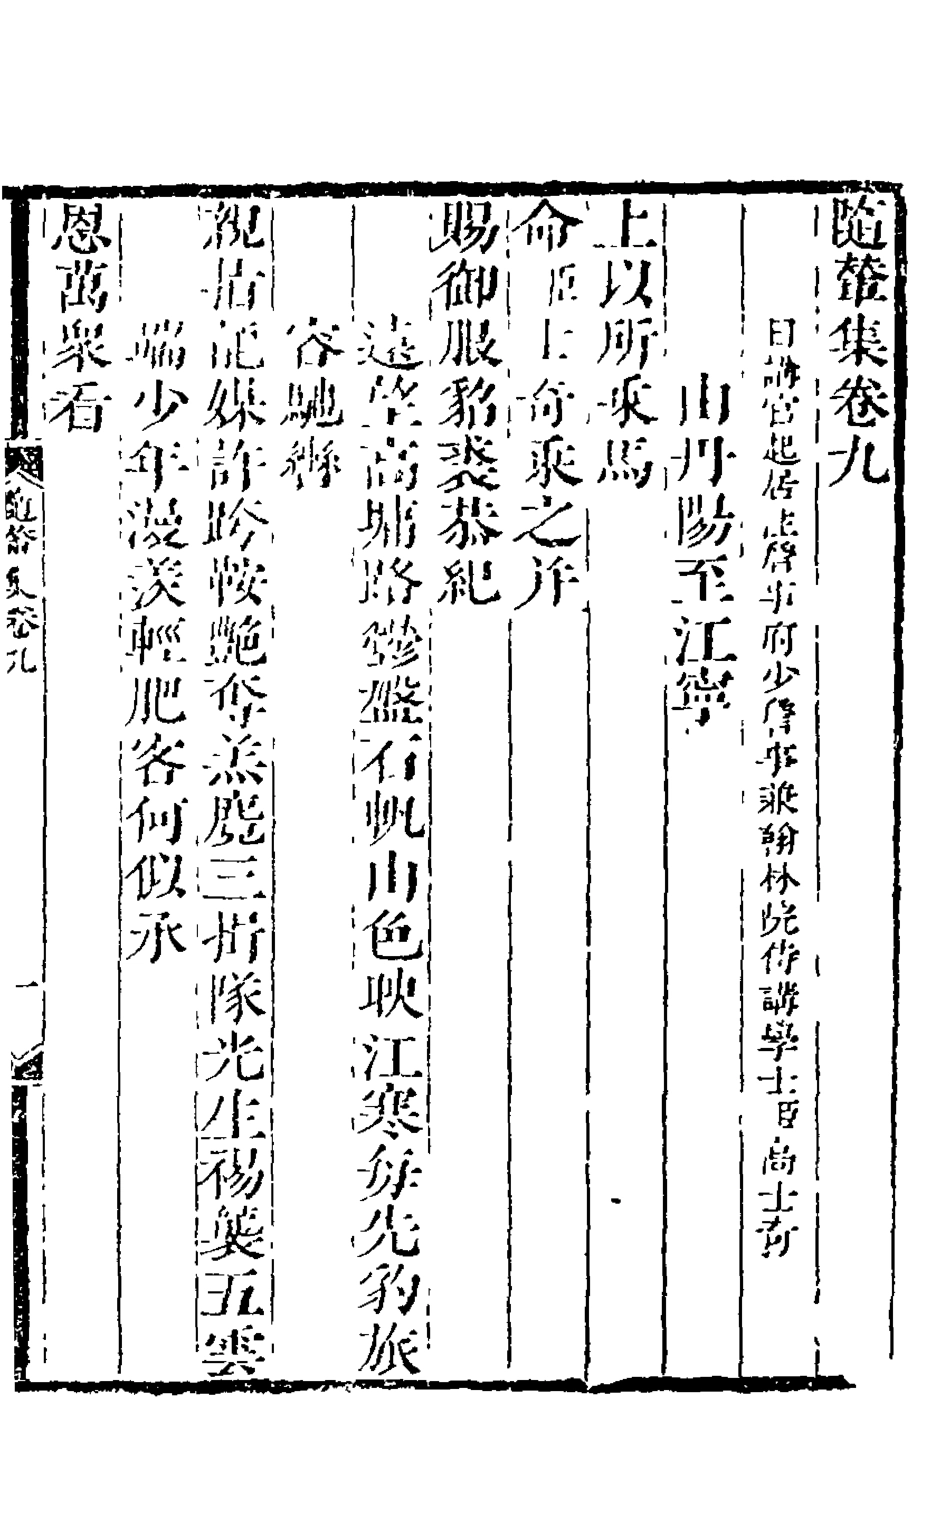 隨輦集卷九
日講官起居注詹事府少詹事兼翰林院侍講學士臣高士奇
山丹陽至江寧
上以所乘馬
命臣士奇乘之并
賜御服貂裘恭紀
遠望高墉路鬱盤石帆山色映江寒每先豹旅
容馳轡
親沾記媒許跨鞍艷奪羔麑三指隊光生裼襲五雲
端少年漫羨輕肥客何似承
恩萬衆看
隨輦集卷九
一